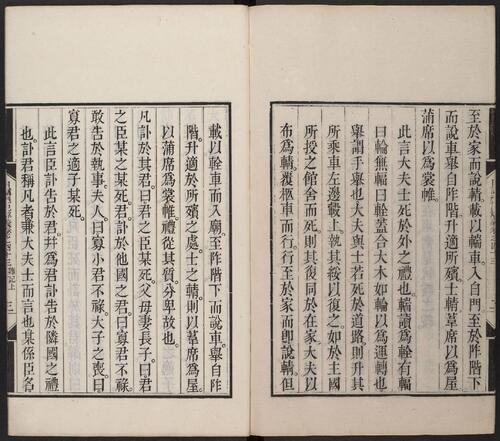 至於家而說輤載以輲車入自門至於阼階下
而說車舉自阼階升適所殯士輤葦席以爲屋
蒲席以爲裳帷
此言大夫士死於外之禮也輲讀爲輇有輻
曰輪無輻曰輇蓋合大木如輪以爲運轉也
舉謂手舉也大夫與士若死於道路則升其
所乘車左邊轂上執其綏以復之如於主國
所授之館舍而死則其復同於在家大夫以
布爲輤覆柩車而行行至於家而卽說輤但
載以輇車而入廟至阼階下而說車舉自阼
階升適於所殯之處士之輤則以葦席爲屋
以蒲席爲裳帷禮從其質分卑故也
凡訃於其君曰君之臣某死父母妻長子曰君
之臣某之某死君訃於他國之君曰寡君不祿
敢告於執事夫人曰寡小君不祿大子之喪曰
寡君之適子某死
此言臣訃告於君幷爲君訃告於隣國之禮
也訃君稱凡者兼大夫士而言也某係臣名